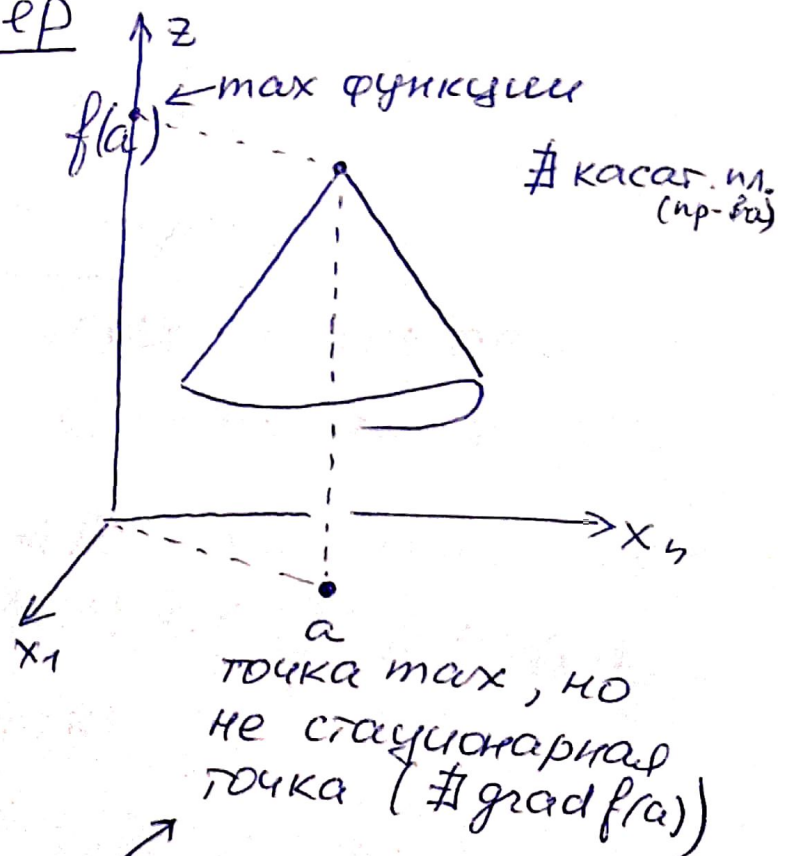 ер
z
f(a)
← max функции
∄ касат. пл.
(пр-ва)
xₙ
x₁
a
точка max, но
не стационарная
точка (∄ grad f(a))